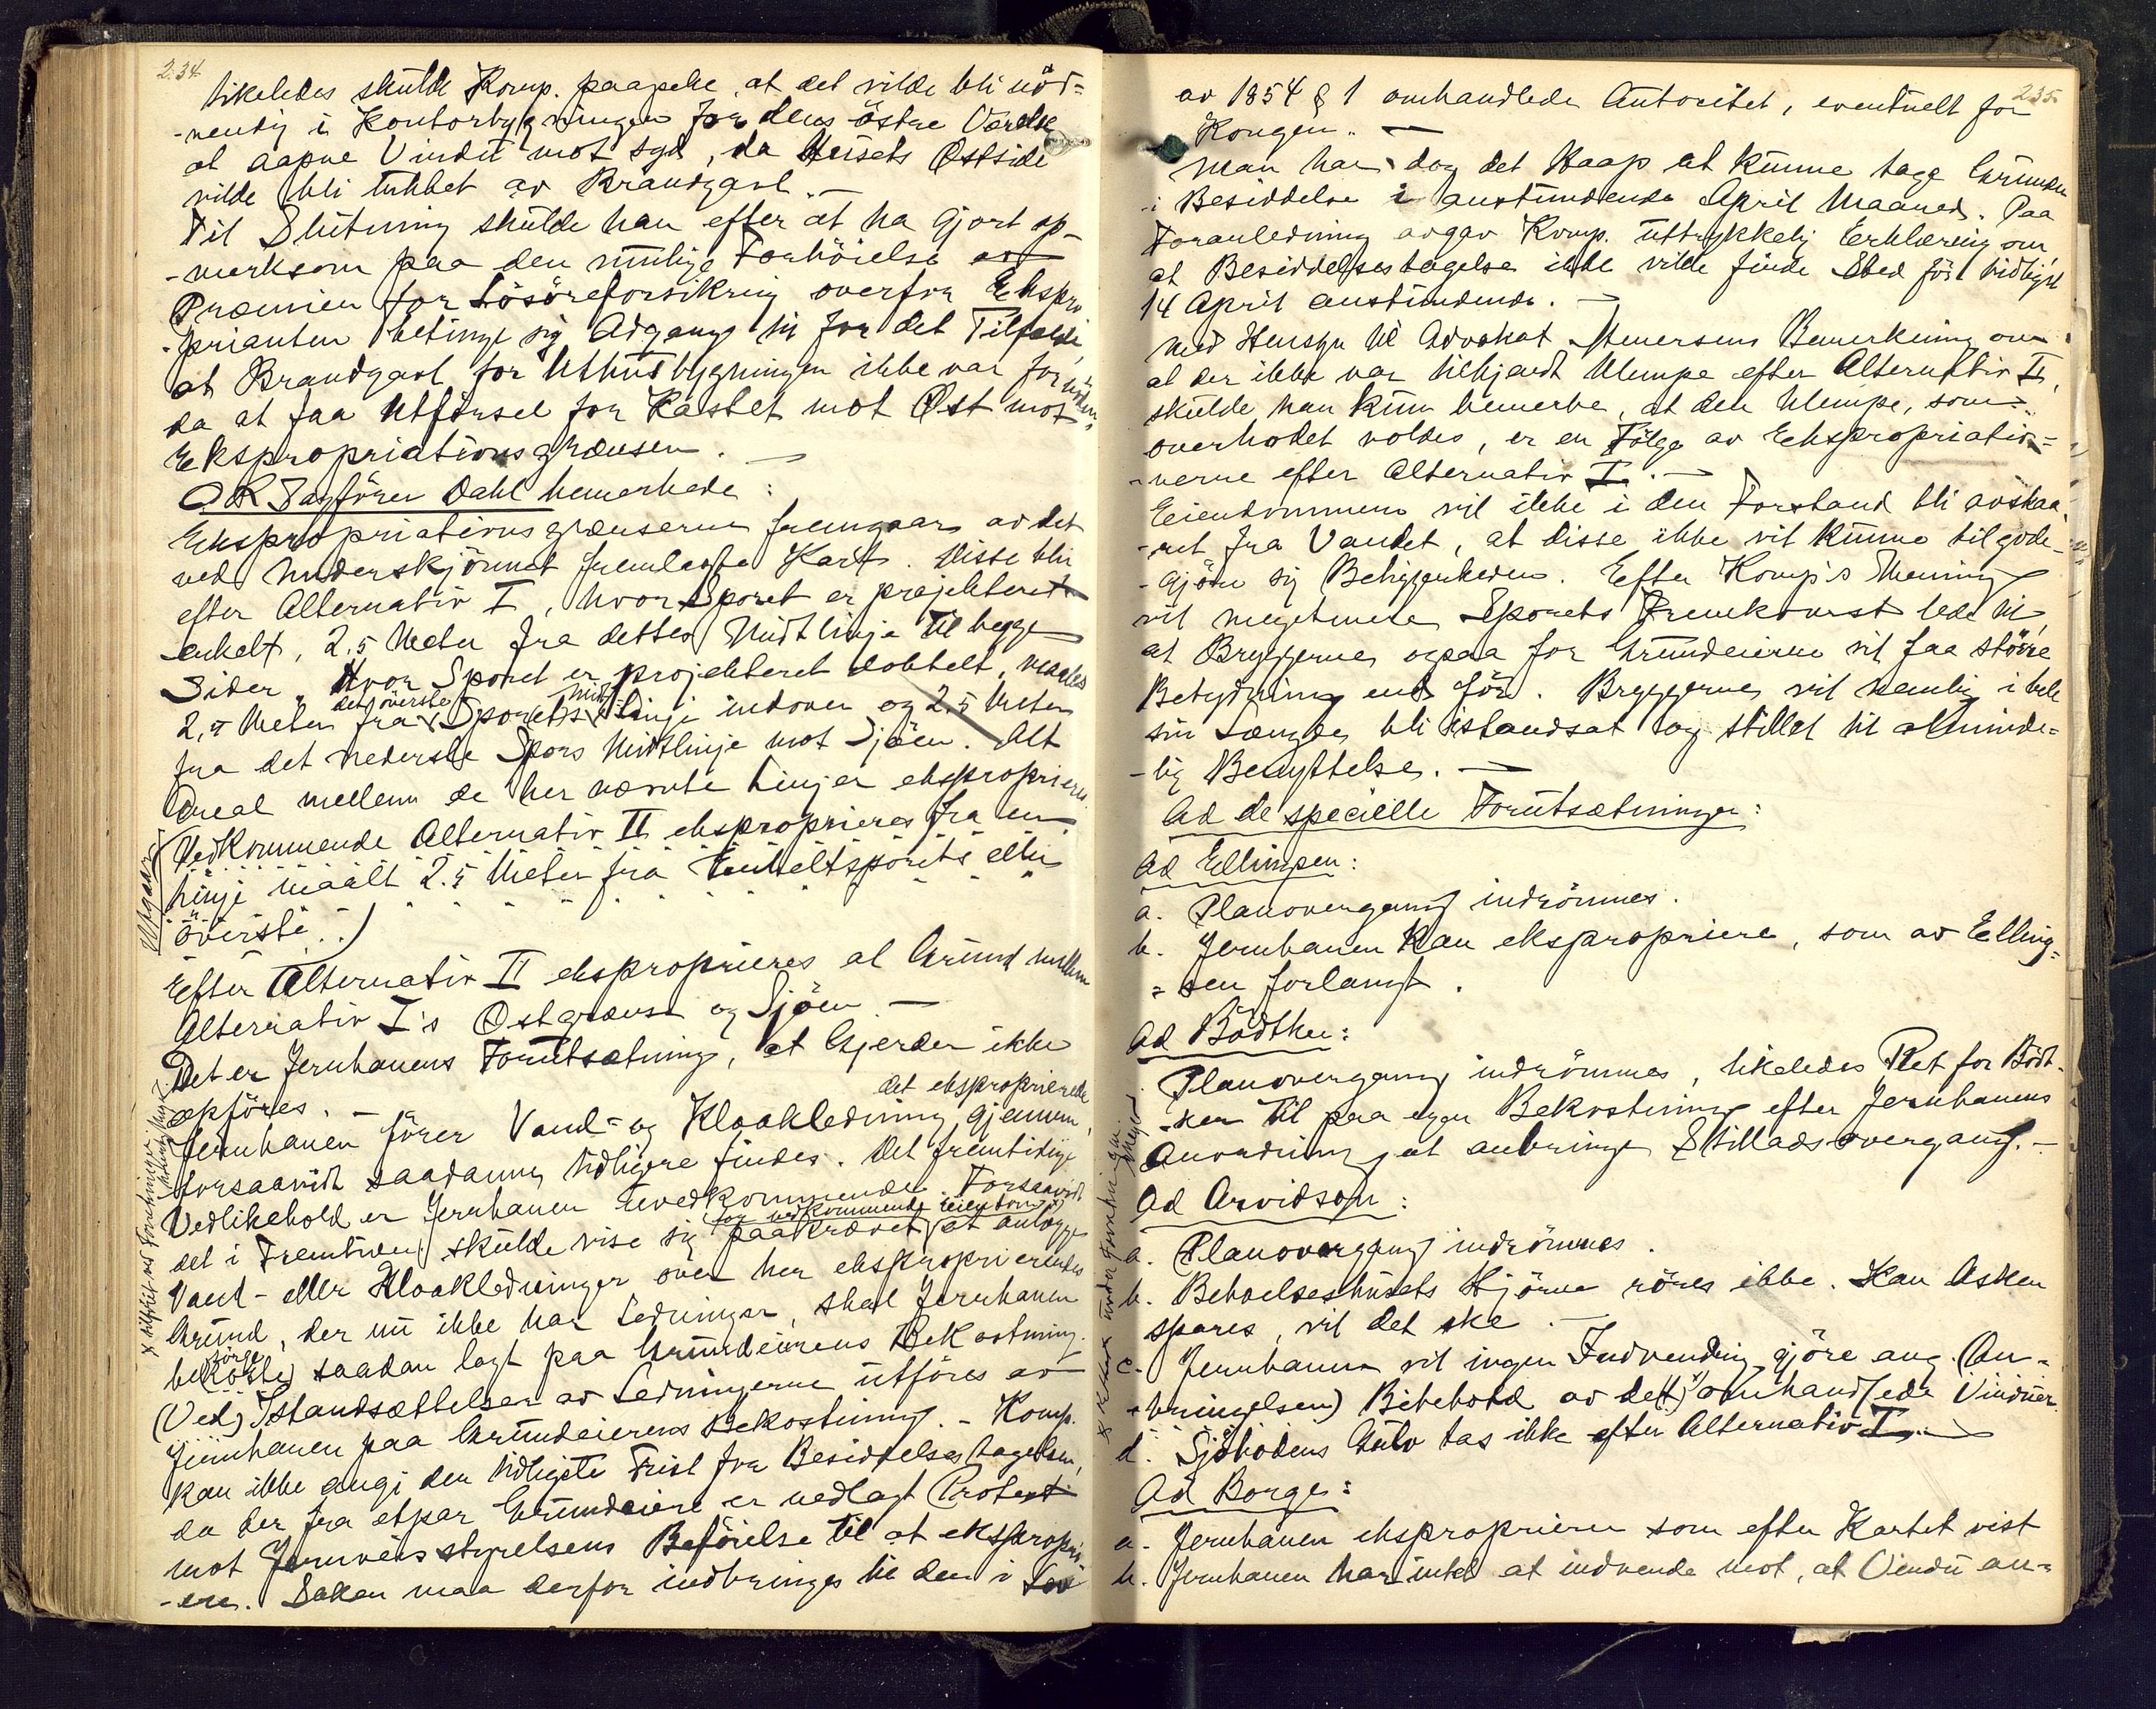 234
likeledes skulde Komp. paapeke, at det vilde bli nöd-
-vendig i Kontorbygningen for dens östre Værelse
at aapne Vindu mot syd, da Husets Østside
vilde bli lukket av Brandgavl. —
Til Slutning skulde han efter at ha gjort op-
-merksom paa den mulige Forhöielse av
Præmien for Lösöreforsikring overfor Ekspro
-prianten betinge sig Adgang til for det Tilfælde,
at Brandgavl for Uthusbygningen ikke var fornöden,
da at faa Utförsel for Kastet mot Øst mot
Ekspropriationsgrænsen. —
O R Sagförer Dahl bemerkede:
Ekspropriationsgrænserne fremgaar av det
ved Underskjönnet fremlagte Kart. Disse blir
efter Alternativ I, hvor Sporet er projekteret
enkelt, 2.5 Meter fra dettes Midtlinje til begge
Sider. Hvor Sporet er projekteret dobbelt, maales
2,5 Meter fra det överste Sporets Midtlinje indover og 2.5 Meter
fra det nederste Spors Midtlinje mot Sjöen. Alt
Areal mellem de her nævnte Linjer eksproprieres.
(Vedkommende Alternativ II eksproprieres fra en
Linje maalt 2.5 Meter fra Enkeltsporets eller
överste..)
Utgaar
Efter Alternativ II eksproprieres al Grund mellem
Alternativ I's Østgrænse og Sjöen —
Det er Jernbanens Forutsætning, at Gjerder ikke
opföres. —
Jernbanen förer Vand- og Kloakledning gjennem det eksproprierede,
forsaavidt saadanne tidligere findes. Det fremtidige
Vedlikehold er Jernbanen uvedkommende. Forsaavidt
det i Fremtiden skulde vise sig paakrævet for vedkommende Eiendom at anlægge
Vand- eller Kloakledninger over her eksproprierendes
Grund, der nu ikke har Ledninger, skal Jernbanen
(bekoste) sörge saadan lagt paa Grundeierens Bekostning.
(Ved) Istandsættelsen av Ledningerne utföres av
Jernbanen paa Grundeierens Bekostning. - Komp.
kan ikke angi den tidligste Frist for Besiddelsestagelsen,
da der fra etpar Grundeiere er nedlagt Protest
mot Jernveisstyrelsens Beföielse til at ekspropri-
-ere. Saken maa derfor indbringes til den i Lov
235
av 1854 § 1 omhandlede Autoritet, eventuelt for
Kongen. —
Man har dog det Haap at kunne tage Grunden
i Besiddelse i anstundende April Maaned. Paa
Foranledning avgav Komp. uttrykkelig Erklæring om
at Besiddelsestagelse ikke vilde finde Sted för tidligst
14 April anstundende. —
Med Hensyn til Advokat Bemerkning om
at der ikke var tilkjendt Ulempe efter Alternativ II,
skulde han kun bemerke, at den Ulempe, som
overhodet voldes, er en Fölge av Ekspropriatio-
-nerne efter Alternativ I. —
Eiendommene vil ikke i den Forstand bli avskaa
-ret fra Vandet, at disse ikke vil kunne tilgode-
-gjöre sig Beliggenheden. Efter Komp's Mening
vil megetmere Sporets Fremkomst lede til,
at Bryggerne ogsaa for Grundeierne vil faa större
Betydning end för. Bryggerne vil nemlig i hele
sin Længde bli istandsat og stillet til alminde-
-lig Benyttelse. —
Ad de specielle Forutsætninger:
Ad Ellingsen:
a. Planovergang indrömmes.
b. Jernbanen kan ekspropriere, som av Elling-
-sen forlangt.
Ad Bödtker:
Planovergang indrömmes, likeledes Ret for Bödt-
-ker til paa egen Bekostning efter Jernbanens
Anvisning at anbringe Stilladsovergang. —
Ad Arvidson:
a. Planovergang indrömmes.
b. Behoelseshusets Hjörne röres ikke. Kan Asken
spares, vil det ske. —
c. Jernbanen vil ingen Indvending gjöre ang. (An-
-bringelsen) Bibehold av de(t) omhandlede Vinduer.
d. Sjöbodens Gulv tas ikke efter Alternativ I. —
Ad Borge:
a. Jernbanen eksproprierer som efter Kartet vist
b. Jernbanen har intet at indvende mot, at Vindu an-